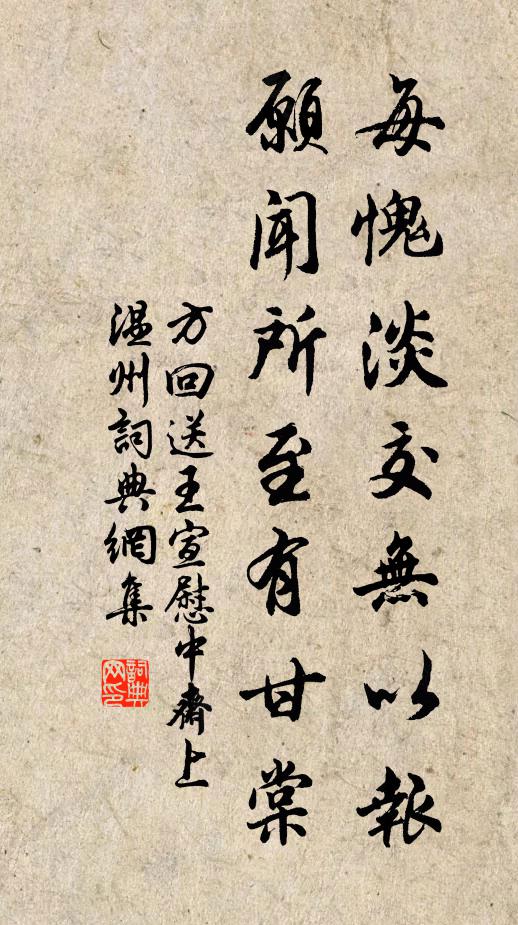 每愧淡交無以報
願聞所至有甘棠
方回送王宣慰中齋上
温州詞典網集
詞典网印